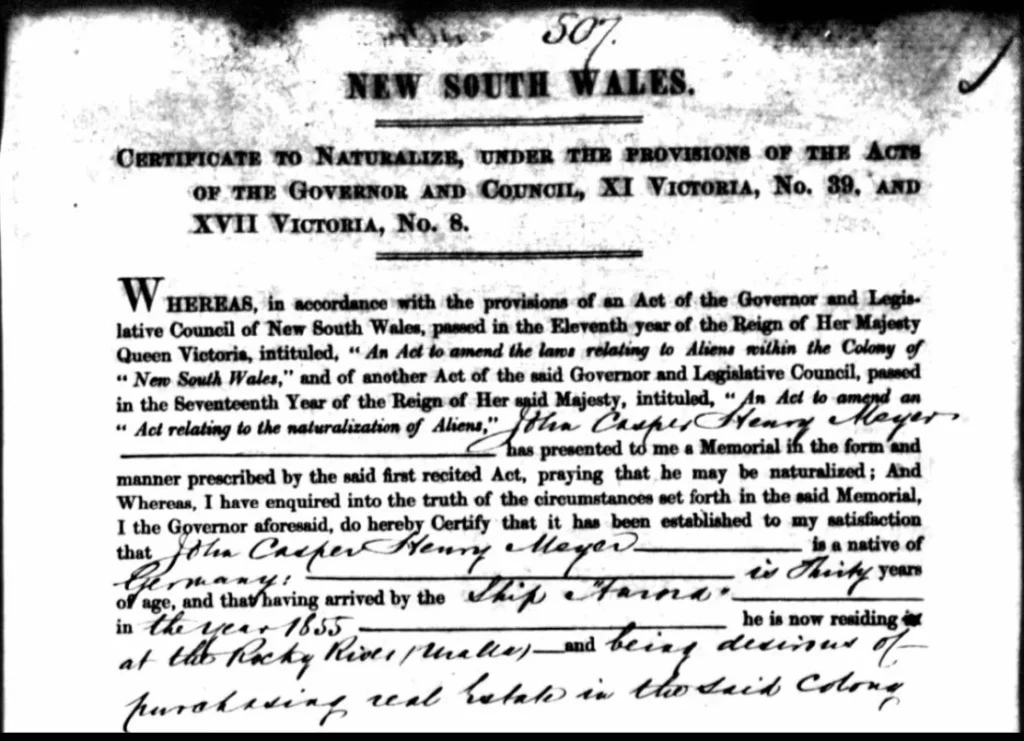 507.
NEW SOUTH WALES.
CERTIFICATE TO NATURALIZE, UNDER THE PROVISIONS OF THE ACTS
OF THE GOVERNOR AND COUNCIL, XI VICTORIA, No. 39, AND
XVII VICTORIA, No. 8.
WHEREAS, in accordance with the provisions of an Act of the Governor and Legis-
lative Council of New South Wales, passed in the Eleventh year of the Reign of Her Majesty
Queen Victoria, intituled, "An Act to amend the laws relating to Aliens within the Colony of
"New South Wales," and of another Act of the said Governor and Legislative Council, passed
in the Seventeenth Year of the Reign of Her said Majesty, intituled, "An Act to amend an
"Act relating to the naturalization of Aliens," John Casper Henry Meyer
has presented to me a Memorial in the form and
manner prescribed by the said first recited Act, praying that he may be naturalized; And
Whereas, I have enquired into the truth of the circumstances set forth in the said Memorial,
I the Governor aforesaid, do hereby Certify that it has been established to my satisfaction
that John Casper Henry Meyer is a native of
Germany: is Thirty years
of age, and that having arrived by the Ship "Aurora"
in the year 1855 he is now residing
at the Rocky River (Uralla) and being desirous of
purchasing real Estate in the said Colony